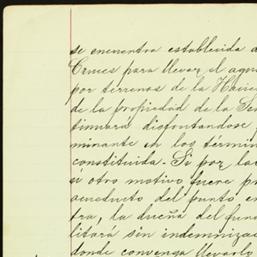 se encuentra establecida a
Cruces para llevar el agua
por terrenos de la Hacie
de la propiedad de la Se
tinuará disfrutandose
minante en los términ
constituida. Si por la
ú otro motivo fuere p
acueducto del punto en
tra, la dueña del fun
litará sin indemnizac
donde convenga llevarlo